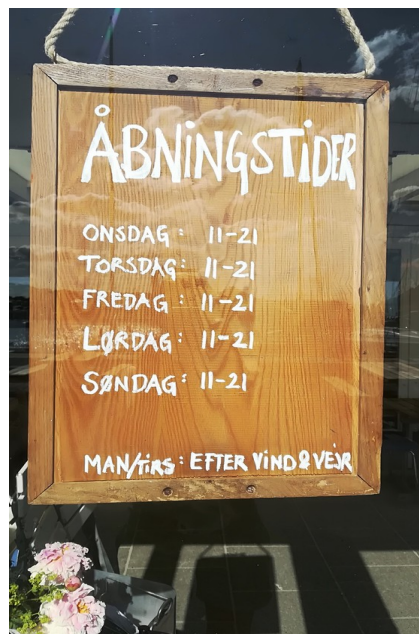 ÅBNINGSTIDER
ONSDAG: 11-21
TORSDAG: 11-21
FREDAG: 11-21
LØRDAG: 11-21
SØNDAG: 11-21
MAN/TIRS: EFTER VIND & VEJR